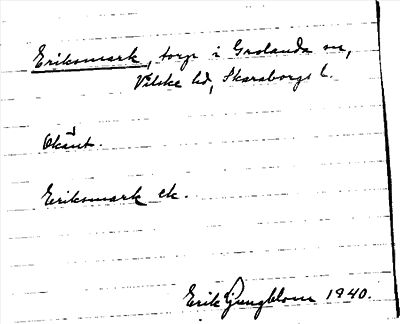 Eriksmark, torp i Grolanda sn,
Vilske hd, Skaraborgs l.
Okänt.
Eriksmark ek.
Erik Ljungblom 1940.